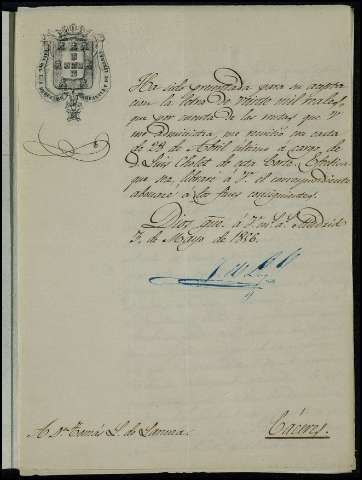 Ha sido presentada para su acepta-
cion la letra de veinte mil reales,
que por cuenta de las rentas que V.
me administra, me remitió en carta
de 28 de Abril ultimo á cargo de
D. Luis Cholet de esta Corte.
que sea, librare á V. el correspondiente
abonaré á los fines consiguientes.
Dios gue. á V. m.s a.s Madrid
3. de Mayo de 1856.
A Dn. Tomás L. de Larriva.
Cáceres.